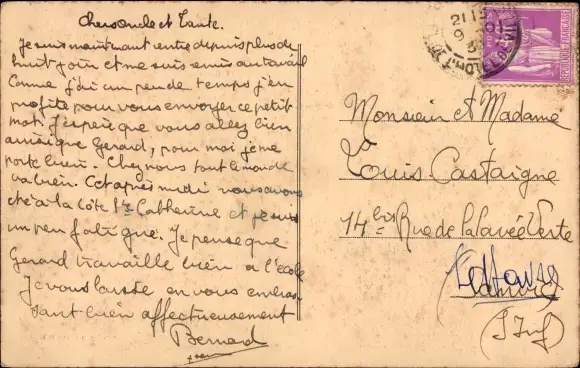 Chers oncle et Tante.
Je suis maintenant entre depuis plus de
huit jour et me suis remis au travail
Comme j'ai un peu de temps j'en
profite pour vous envoyer ce petit
mot. J'espère que vous allez bien
ainsi que Gerard, pour moi je me
porte bien. Chez nous tout le monde
va bien. Cet après midi nous avons
été a la côte Ste Catherine et je suis
un peu fatigué. Je pense que
Gerard travaille bien a l'école
Je vous laisse en vous embras
sant bien affectueusement
Bernard
21 15
9
REPUBLIQUE FRANCAISE
Monsieur et Madame
Louis Castaigne
14 bis Rue de la Cavée Verte
Le Havre
(S Inf)